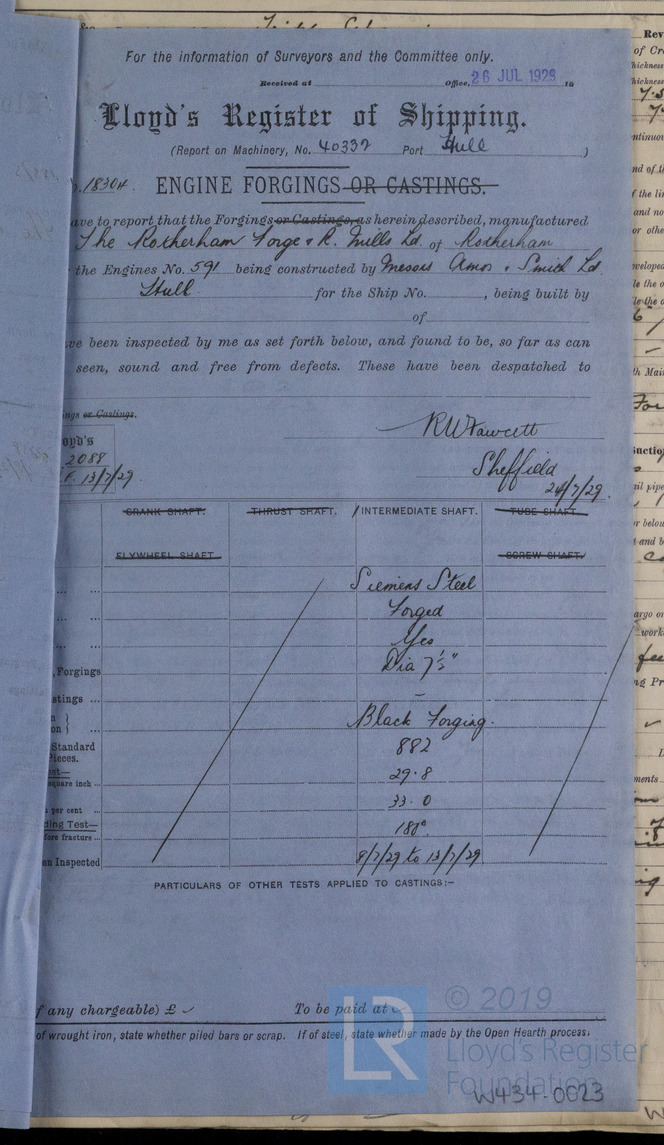 For the information of Surveyors and the Committee only.
Received at Office, 26 JUL 1929 19
Lloyd's Register of Shipping.
(Report on Machinery, No. 40332 Port Hull )
18304. ENGINE FORGINGS OR CASTINGS.
ave to report that the Forgings or Castings, as herein described, manufactured
The Rotherham Forge & R. Mills Ld. of Rotherham
the Engines No. 591 being constructed by Messrs Amos & Smith Ld.
Hull for the Ship No. , being built by
of
ve been inspected by me as set forth below, and found to be, so far as can
seen, sound and free from defects. These have been despatched to
ngs or Castings.
oyd's
2088
F. 13/7/29.
RWFawcett
Sheffield
24/7/29.
CRANK SHAFT. THRUST SHAFT. INTERMEDIATE SHAFT. TUBE SHAFT
FLYWHEEL SHAFT SCREW SHAFT.
Siemens Steel
Forged
Yes
Forgings Dia 7½"
stings ... –
on } ... Black Forging.
Standard Pieces. 882
square inch ... 29.8
per cent ... 33.0
ding Test—
fore fracture ... 180°
en Inspected 8/7/29 to 13/7/29
PARTICULARS OF OTHER TESTS APPLIED TO CASTINGS:—
f any chargeable) £ To be paid at
of wrought iron, state whether piled bars or scrap. If of steel, state whether made by the Open Hearth process.
LR © 2019
Lloyd's Register
Foundation
W434-0023